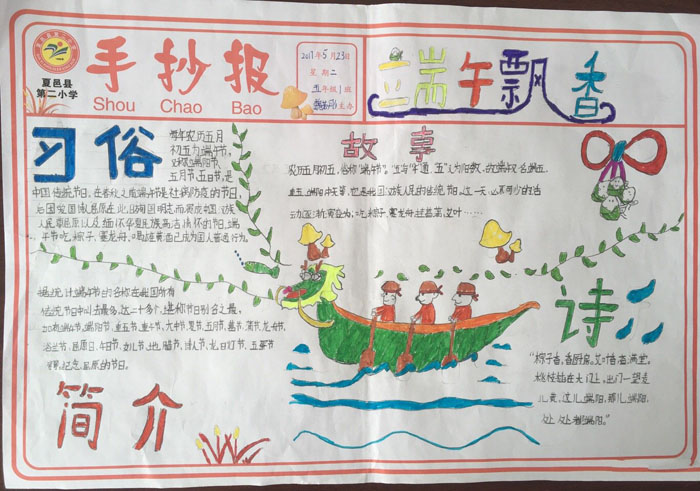 夏邑县
第二小学
手抄报
Shou Chao Bao
2017年5月23日
星期二
五年级1班
主办
端午飘香
习俗
每年农历五月
初五为端午节,
又称端阳节、
五月节、五日节,是
中国传统节日,在春秋之后端午是祛病防疫的节日,
后因爱国诗人屈原在此
人民草屈原以及缅怀华夏民族高洁情怀的节日,端
午节吃粽子、赛龙舟、喝雄黄酒已成为国人普遍行为。
故事
农历五月初五,俗称"端午节"。
重五、端阳、中天等,它是我国汉族人民的传统节日。这一天必不可少的活
动逐渐演变为:吃粽子,赛龙舟,挂菖蒲、艾叶……
据统计端午节的名称在我国所有
传统节日中叫法最多,达二十多个,堪称节日别名之最,
如有端午节、端阳节、重五节、重午节、天中节、夏节、五月节、菖节、蒲节、龙舟节、
浴兰节、屈原日、午日节、女儿节、地腊节、诗人节、龙日、灯节、五蛋节
纪念屈原的节日。
简介
诗二
"粽子香,香厨房。艾叶香,香满堂。
桃枝插在大门上,出门一望麦
儿黄。这儿端阳,那儿端阳,
处处都端阳。"